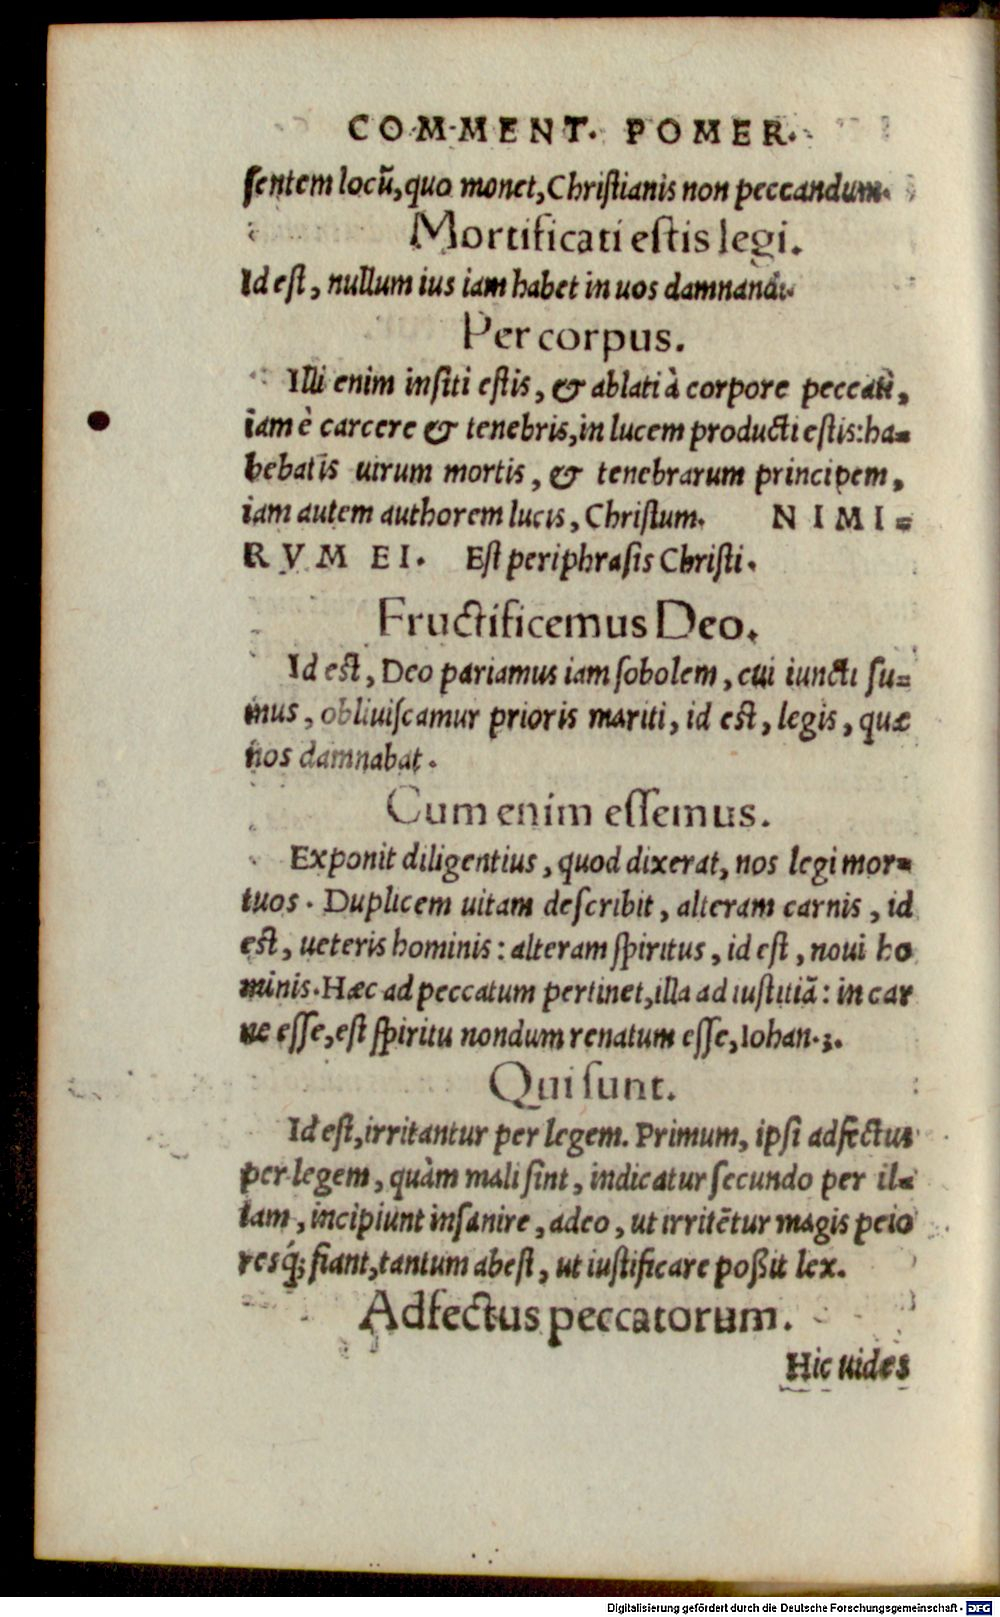 COMMENT. POMER.
sentem locũ, quo monet, Christianis non peccandum.
Mortificati estis legi.
Id est, nullum ius iam habet in uos damnandi.
Per corpus.
Illi enim insiti estis, & ablati à corpore peccati,
iam è carcere & tenebris, in lucem producti estis: ha=
bebatis uirum mortis, & tenebrarum principem,
iam autem authorem lucis, Christum. NIMI=
RVM EI. Est periphrasis Christi.
Fructificemus Deo.
Id est, Deo pariamus iam sobolem, cui iuncti su=
mus, obliuiscamur prioris mariti, id est, legis, quæ
nos damnabat.
Cum enim essemus.
Exponit diligentius, quod dixerat, nos legi mor=
tuos. Duplicem uitam describit, alteram carnis, id
est, ueteris hominis: alteram spiritus, id est, noui ho
minis. Hæc ad peccatum pertinet, illa ad iustitiã: in car
ne esse, est spiritu nondum renatum esse, Iohan. 3.
Qui sunt.
Id est, irritantur per legem. Primum, ipsi adfectus
per legem, quàm mali sint, indicatur secundo per il=
lam, incipiunt insanire, adeo, ut irritẽtur magis peio
resq́; fiant, tantum abest, ut iustificare poßit lex.
Adfectus peccatorum.
Hic uides
Digitalisierung gefördert durch die Deutsche Forschungsgemeinschaft - DFG